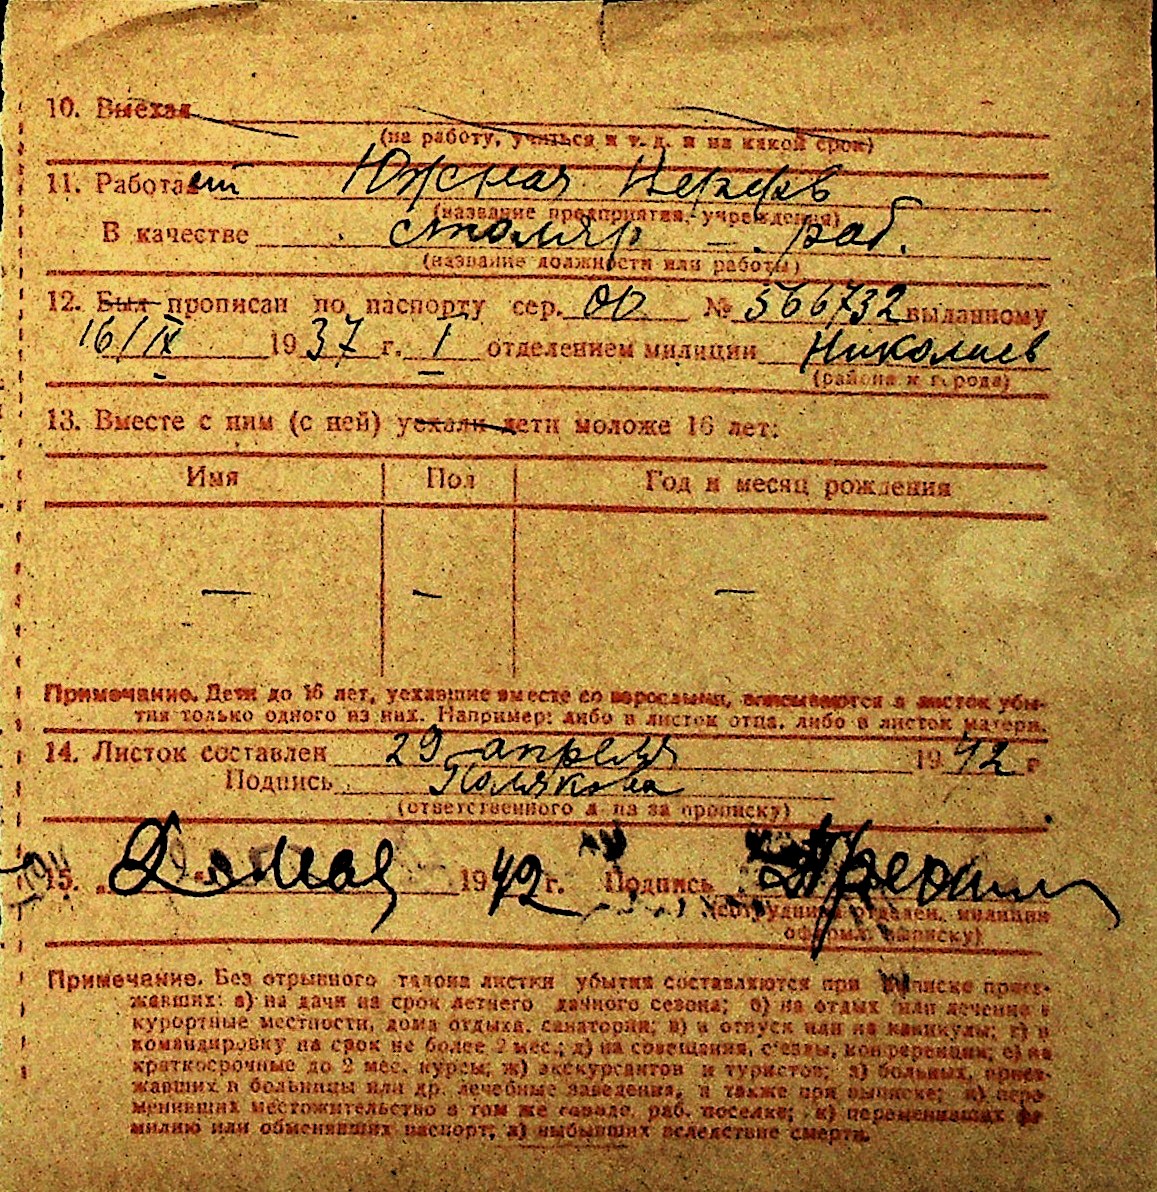 10. Выехал
(на работу, учиться и т. д. и на какой срок)
11. Работающий Южная
(название предприятия, учреждения)
В качестве столяр — раб.
(название должности или работы)
12. Был прописан по паспорту сер. № 566732 выданному
16/IX 1937 г. I отделением милиции Николаев
(района и города)
13. Вместе с ним (с ней) уехали дети моложе 16 лет:
Имя Пол Год и месяц рождения
— — —
Примечание. Дети до 16 лет, уехавшие вместе со взрослыми, вписываются в листок убы-
тия только одного из них. Например: либо в листок отца, либо в листок матери.
14. Листок составлен 29 апреля 1942 г
Подпись Полякова
(ответственного л. ца за прописку)
15. мая 1942 г. Подпись
(сотрудника отделен. милиции
оформл. выписку)
Примечание. Без отрывного талона листки убытия составляются при выписке приез-
жавших: а) на дачи на срок летнего дачного сезона; б) на отдых или лечение в
курортные местности, дома отдыха, санатории; в) в отпуск или на каникулы; г) в
командировку на срок не более 2 мес.; д) на совещания, с'езды, конференции; е) на
краткосрочные до 2 мес. курсы; ж) экскурсантов и туристов; з) больных, приез-
жавших в больницы или др. лечебные заведения, а также при выписке; и) пере-
менивших местожительство в том же городе, раб. поселке; к) переменивших фа-
милию или обменявших паспорт; л) выбывших вследствие смерти.